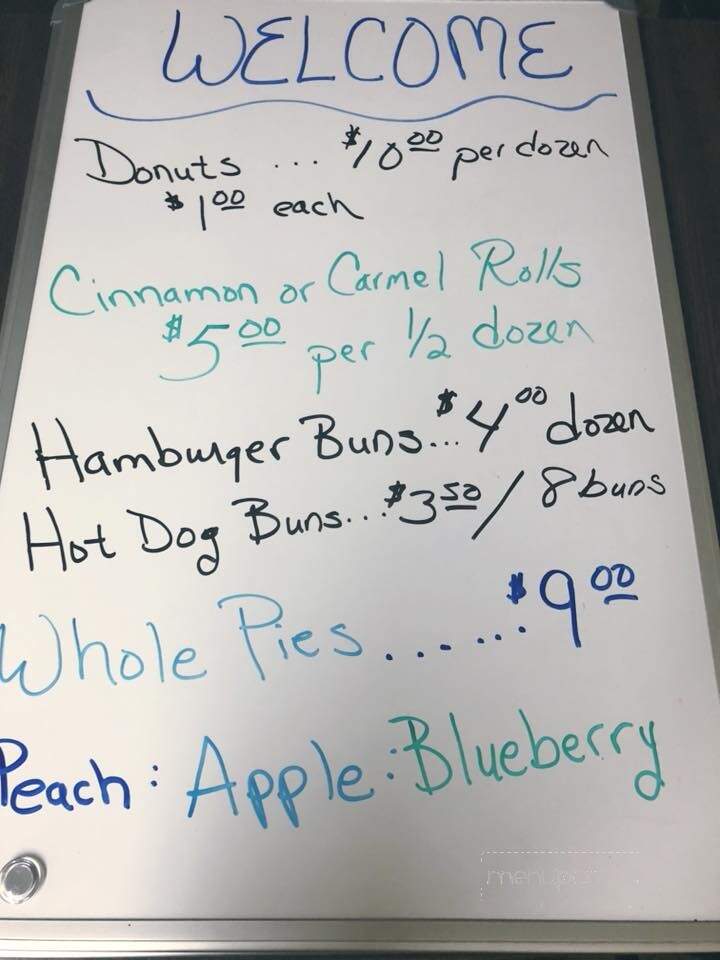 WELCOME
Donuts ... $10.00 per dozen
$1.00 each
Cinnamon or Carmel Rolls
$5.00 per 1/2 dozen
Hamburger Buns...$4.00 dozen
Hot Dog Buns...$3.50/ 8 buns
Whole Pies......$9.00
Peach: Apple: Blueberry